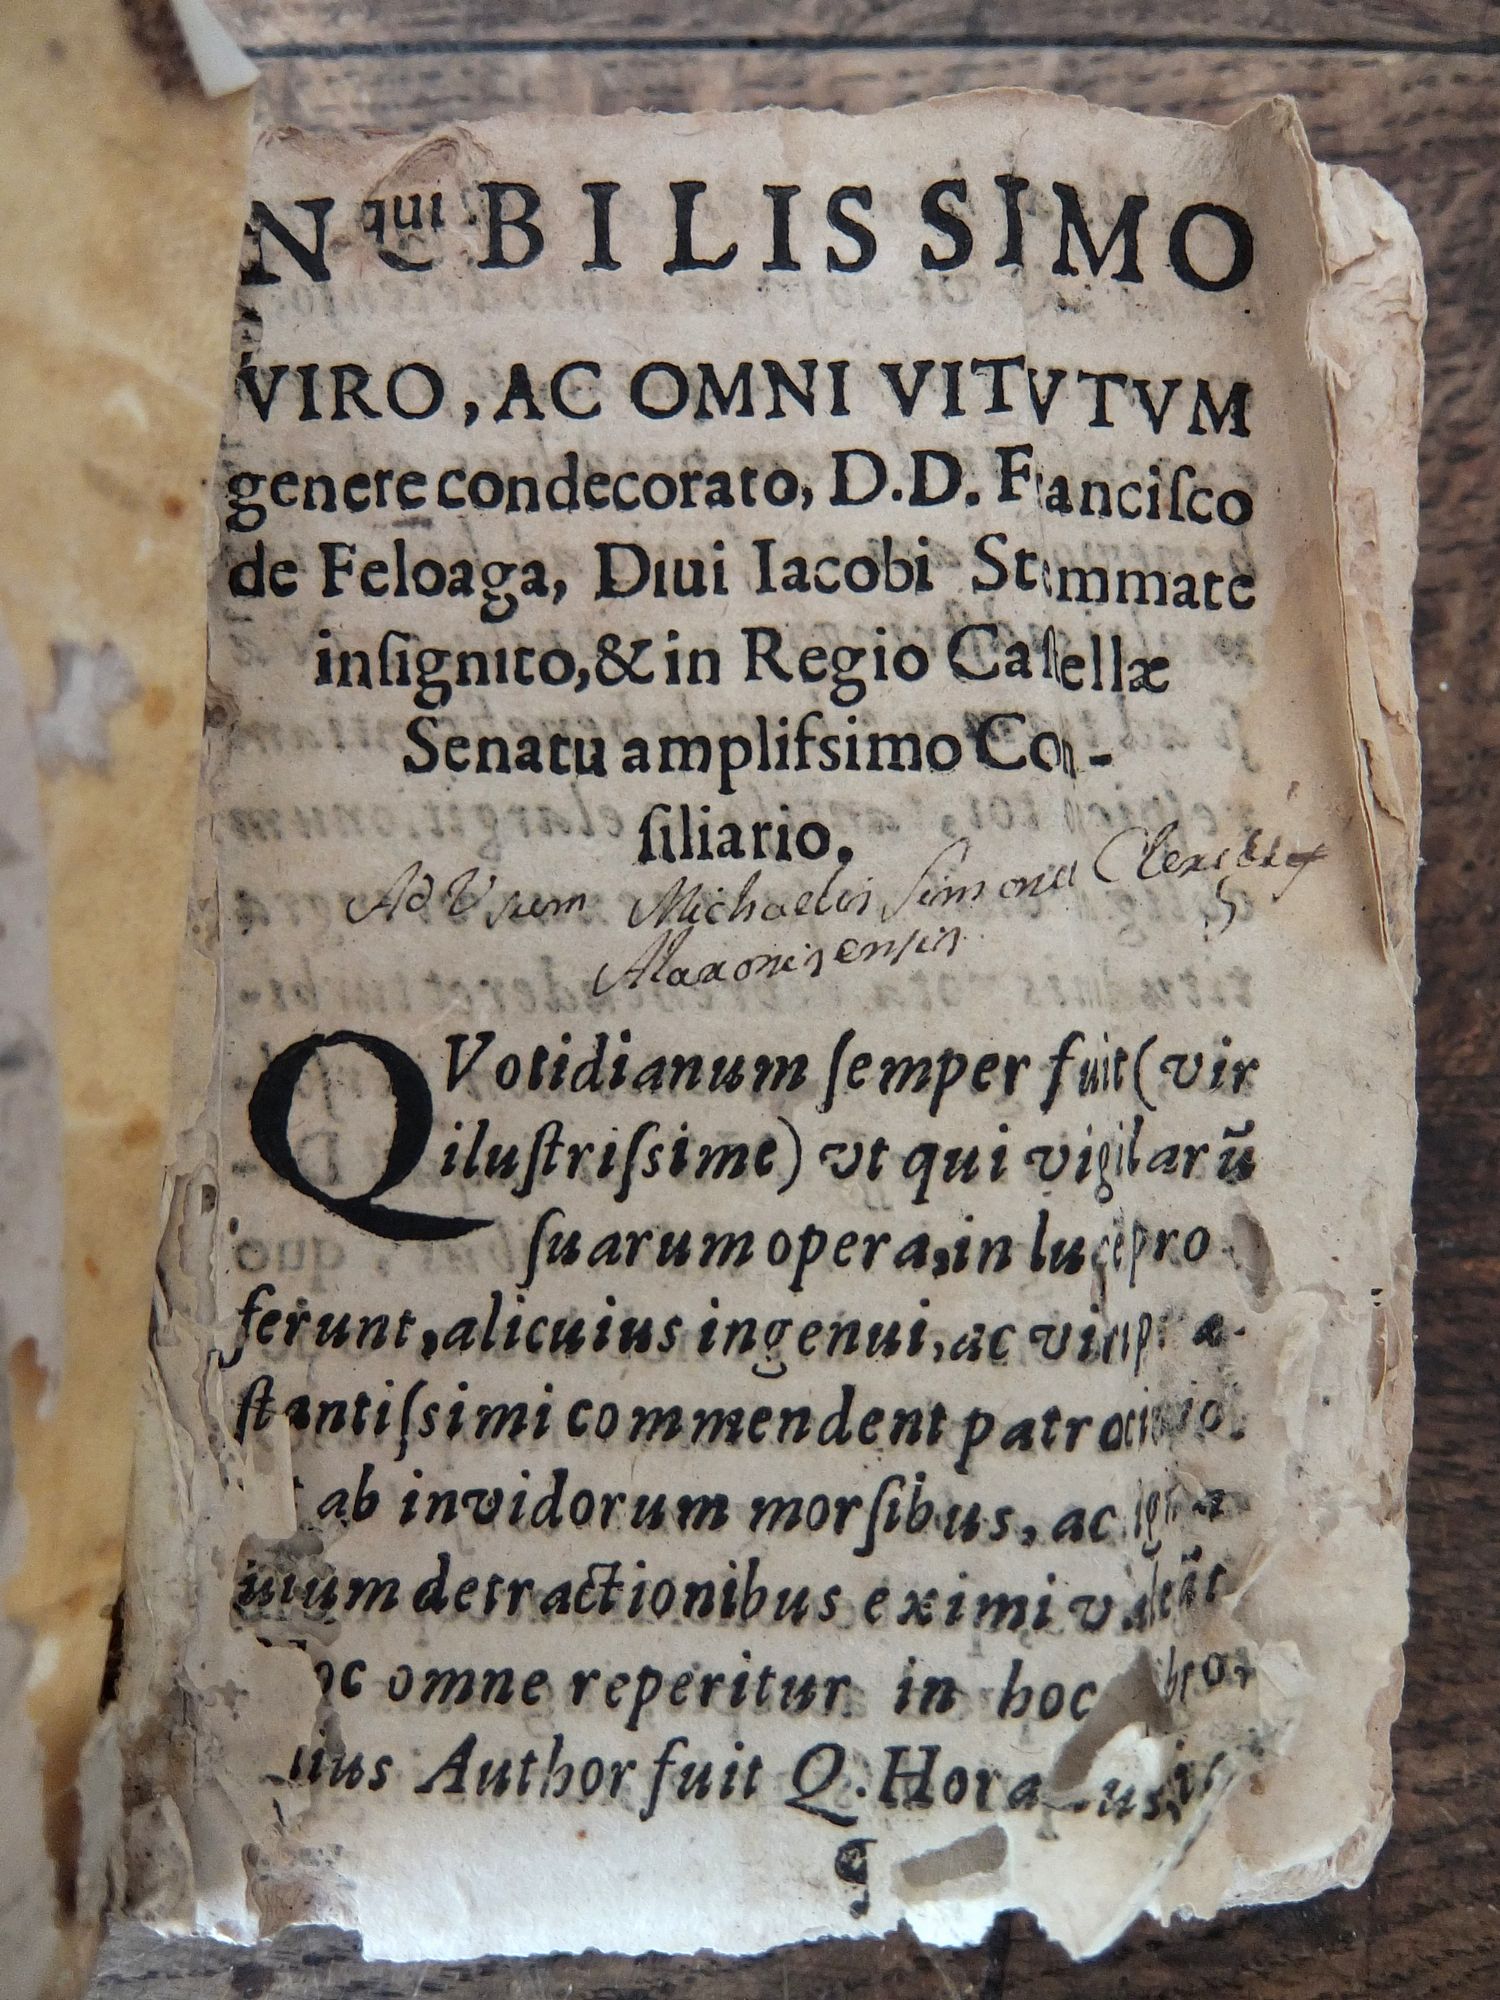 N qui BILISSIMO
VIRO, AC OMNI VITVTVM
genere condecorato, D.D. Franciſco
de Feloaga, Diui Iacobi Stemmate
inſignito, & in Regio Caſtellæ
Senatu ampliſsimo Con-
ſiliario.
Ad Vsum Michaelis Simonis
QVotidianum ſemper fuit (vir
iluſtriſsime) vt qui vigilarū
ſuarum opera, in lucē pro
ferunt, alicuius ingenui, ac viri præ-
ſtantiſsimi commendent patrocinio.
ab invidorum morſibus, ac
detractionibus eximi valeāt
omne reperitur in hoc libro,
Author fuit Q. Horatius,
¶